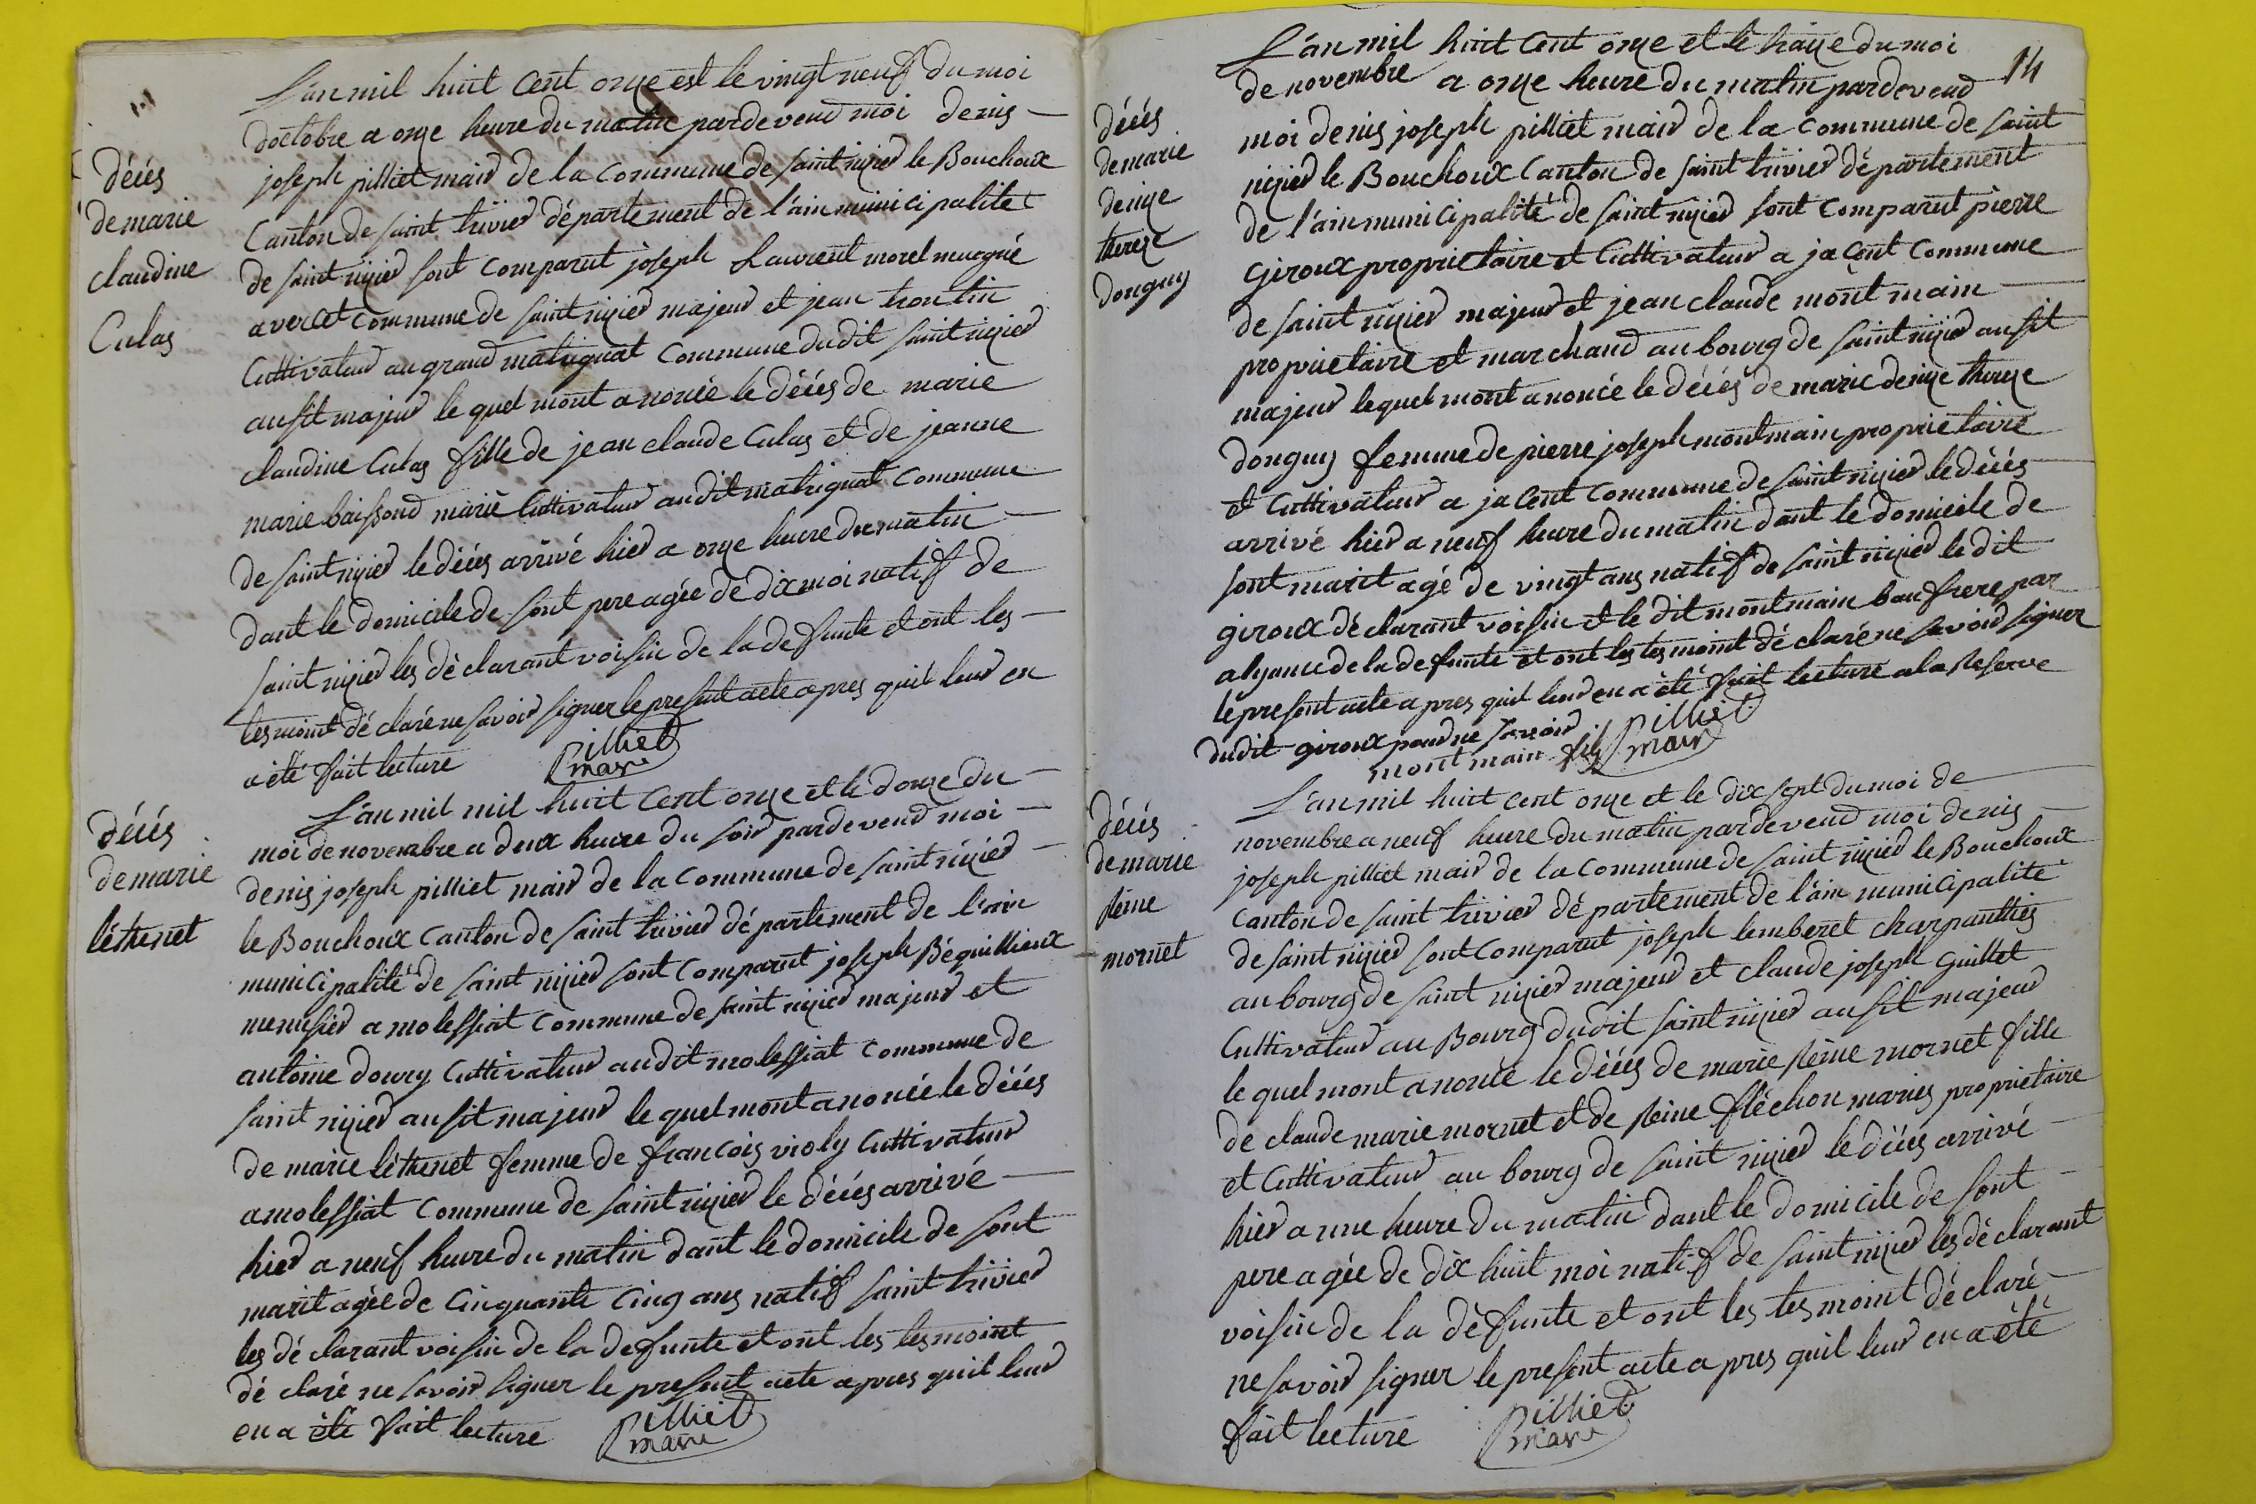 décés
de marie
claudine
Culas
L'an mil huit cent onze est le vingt neuf du moi
doctobre a onze heure du matin pardevend moi denis
joseph pilliet maird de la commune de saint nizied le Bouchoux
Canton de saint trivied département de l'ain municipalité
de saint nizied sont comparut joseph Laurent morel
a vercet commune de saint nizied majeud et jean trontin
Cuttivateud au grand matrignat commune dudit saint nizied
ausit majeud le quel mont anoncé le décés de marie
claudine Culas fille de jean claude Culas et de jeanne
marie baissoud marié Cuttivateud audit matrignat commune
de saint nizied le décés arrivé hied a onze heure du matin
dant le domicile de sont pere agée de dix moi natif de
saint nizied les déclarant voisin de la defunte et ont les
tesmoint déclaré ne savoid signer le present acte apres quil leud en
a été fait lecture
Pilliet
maire
décés
de marie
léthenet
L'an mil mil huit cent onze et le douze du
moi de novembre a deux heure du soid pardevend moi
denis joseph pilliet maird de la commune de saint nizied
le Bouchoux Canton de saint trivied département de l'ain
municipalité de saint nizied sont comparut joseph Béquillieux
menusied a molessiat commune de saint nizied majeud et
antoine doury Cuttivateud audit molessiat commune de
saint nizied ausit majeud le quel mont anoncé le décés
de marie léthenet femme de francois violy Cuttivateud
a molessiat commune de saint nizied le décés arrivé
hied a neuf heure du matin dant le domicile de sont
marit agée de Cinquante Cinq ans natif saint trivied
les déclarant voisin de la defunte et ont les tesmoint
déclaré ne savoid signer le present acte apres quil leud
en a été fait lecture
Pilliet
maire
14
décés
de marie
denize
thereze
donguy
L'an mil huit cent onze et le traize du moi
de novembre a onze heure du matin pardevend
moi denis joseph pilliet maird de la commune de saint
nizied le Bouchoux Canton de saint trivied département
de l'ain municipalité de saint nizied sont comparut pierre
Giroux proprietaire et Cuttivateud a jacent commune
de saint nizied majeud et jean claude montmain
proprietaire et marchand au bourg de saint nizied ausit
majeud lequel mont anoncé le décés de marie denize thereze
donguy femme de pierre joseph montmain proprietaire
et Cuttivateud a jacent commune de saint nizied le décés
arrivé hied a neuf heure du matin dant le domicile de
sont marit agé de vingt ans natif de saint nizied le dit
giroux déclarant voisin et le dit montmain bau frere par
alyance de la defunte et ont les tesmoint déclaré ne savoid signer
le present acte apres quil leud en a été fait lecture a la Reserve
dudit giroux poud ne savoir
montmain fils
Pilliet
maire
décés
de marie
Reine
mornet
L'an mil huit cent onze et le dix sept du moi de
novembre a neuf heure du matin pardevend moi denis
joseph pilliet maird de la commune de saint nizied le Bouchoux
canton de saint trivied département de l'ain municipalité
de saint nizied sont comparut joseph lemberet charpanttied
au bourg de saint nizied majeud et claude joseph Guillet
Cuttivateud au Bourg dudit saint nizied ausit majeud
le quel mont anoncé le décés de marie Reine mornet fille
de claude marie mornet et de Reine fléchon mariés proprietaire
et Cuttivateud au bourg de saint nizied le décés arrivé
hied a une heure du matin dant le domicile de sont
pere agée de dix huit moi natif de saint nizied les déclarant
voisin de la défunte et ont les tesmoint déclaré
ne savoid signer le present acte apres quil leud en a été
fait lecture
Pilliet
maire